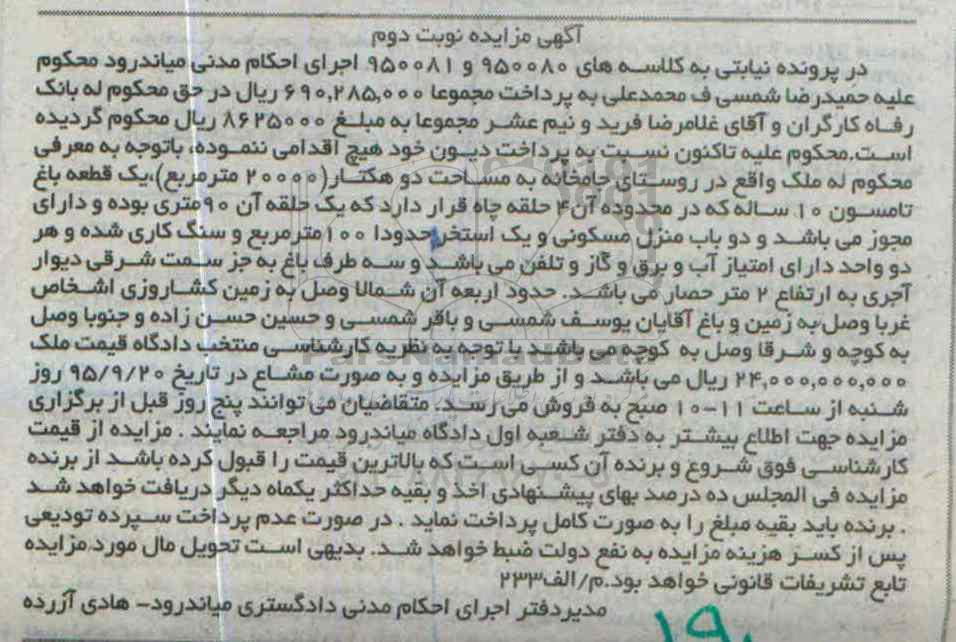 آگهی مزایده نوبت دوم
در پرونده نیابتی به کلاسه های ۹۵۰۰۸۰ و ۹۵۰۰۸۱ اجرای احکام مدنی میاندرود محکوم
علیه حمیدرضا شمسی ف محمدعلی به پرداخت مجموعا ۶۹۰,۲۸۵,۰۰۰ ریال در حق محکوم له بانک
رفاه کارگران و آقای غلامرضا فرید و نیم عشر مجموعا به مبلغ ۸۶۲۵۰۰۰ ریال محکوم گردیده
است.محکوم علیه تاکنون نسبت به پرداخت دیون خود هیچ اقدامی ننموده، باتوجه به معرفی
محکوم له ملک واقع در روستای جامخانه به مساحت دو هکتار(۲۰۰۰۰ مترمربع)،یک قطعه باغ
تامسون ۱۰ ساله که در محدوده آن ۴ حلقه چاه قرار دارد که یک حلقه آن ۹۰متری بوده و دارای
مجوز می باشد و دو باب منزل مسکونی و یک استخر حدودا ۱۰۰مترمربع و سنگ کاری شده و هر
دو واحد دارای امتیاز آب و برق و گاز و تلفن می باشد و سه طرف باغ به جز سمت شرقی دیوار
آجری به ارتفاع ۲ متر حصار می باشد. حدود اربعه آن شمالا وصل به زمین کشاروزی اشخاص
غربا وصل به زمین و باغ آقایان یوسف شمسی و باقر شمسی و حسین حسن زاده و جنوبا وصل
به کوچه و شرقا وصل به کوچه می باشد با توجه به نظریه کارشناسی منتخب دادگاه قیمت ملک
۲۴,۰۰۰,۰۰۰,۰۰۰ ریال می باشد و از طریق مزایده و به صورت مشاع در تاریخ ۹۵/۹/۲۰ روز
شنبه از ساعت ۱۱-۱۰ صبح به فروش می رسد. متقاضیان می توانند پنج روز قبل از برگزاری
مزایده جهت اطلاع بیشتر به دفتر شعبه اول دادگاه میاندرود مراجعه نمایند . مزایده از قیمت
کارشناسی فوق شروع و برنده آن کسی است که بالاترین قیمت را قبول کرده باشد از برنده
مزایده فی المجلس ده درصد بهای پیشنهادی اخذ و بقیه حداکثر یکماه دیگر دریافت خواهد شد
. برنده باید بقیه مبلغ را به صورت کامل پرداخت نماید . در صورت عدم پرداخت سپرده تودیعی
پس از کسر هزینه مزایده به نفع دولت ضبط خواهد شد. بدیهی است تحویل مال مورد مزایده
تابع تشریفات قانونی خواهد بود.م/الف۲۳۳
مدیردفتر اجرای احکام مدنی دادگستری میاندرود- هادی آزرده